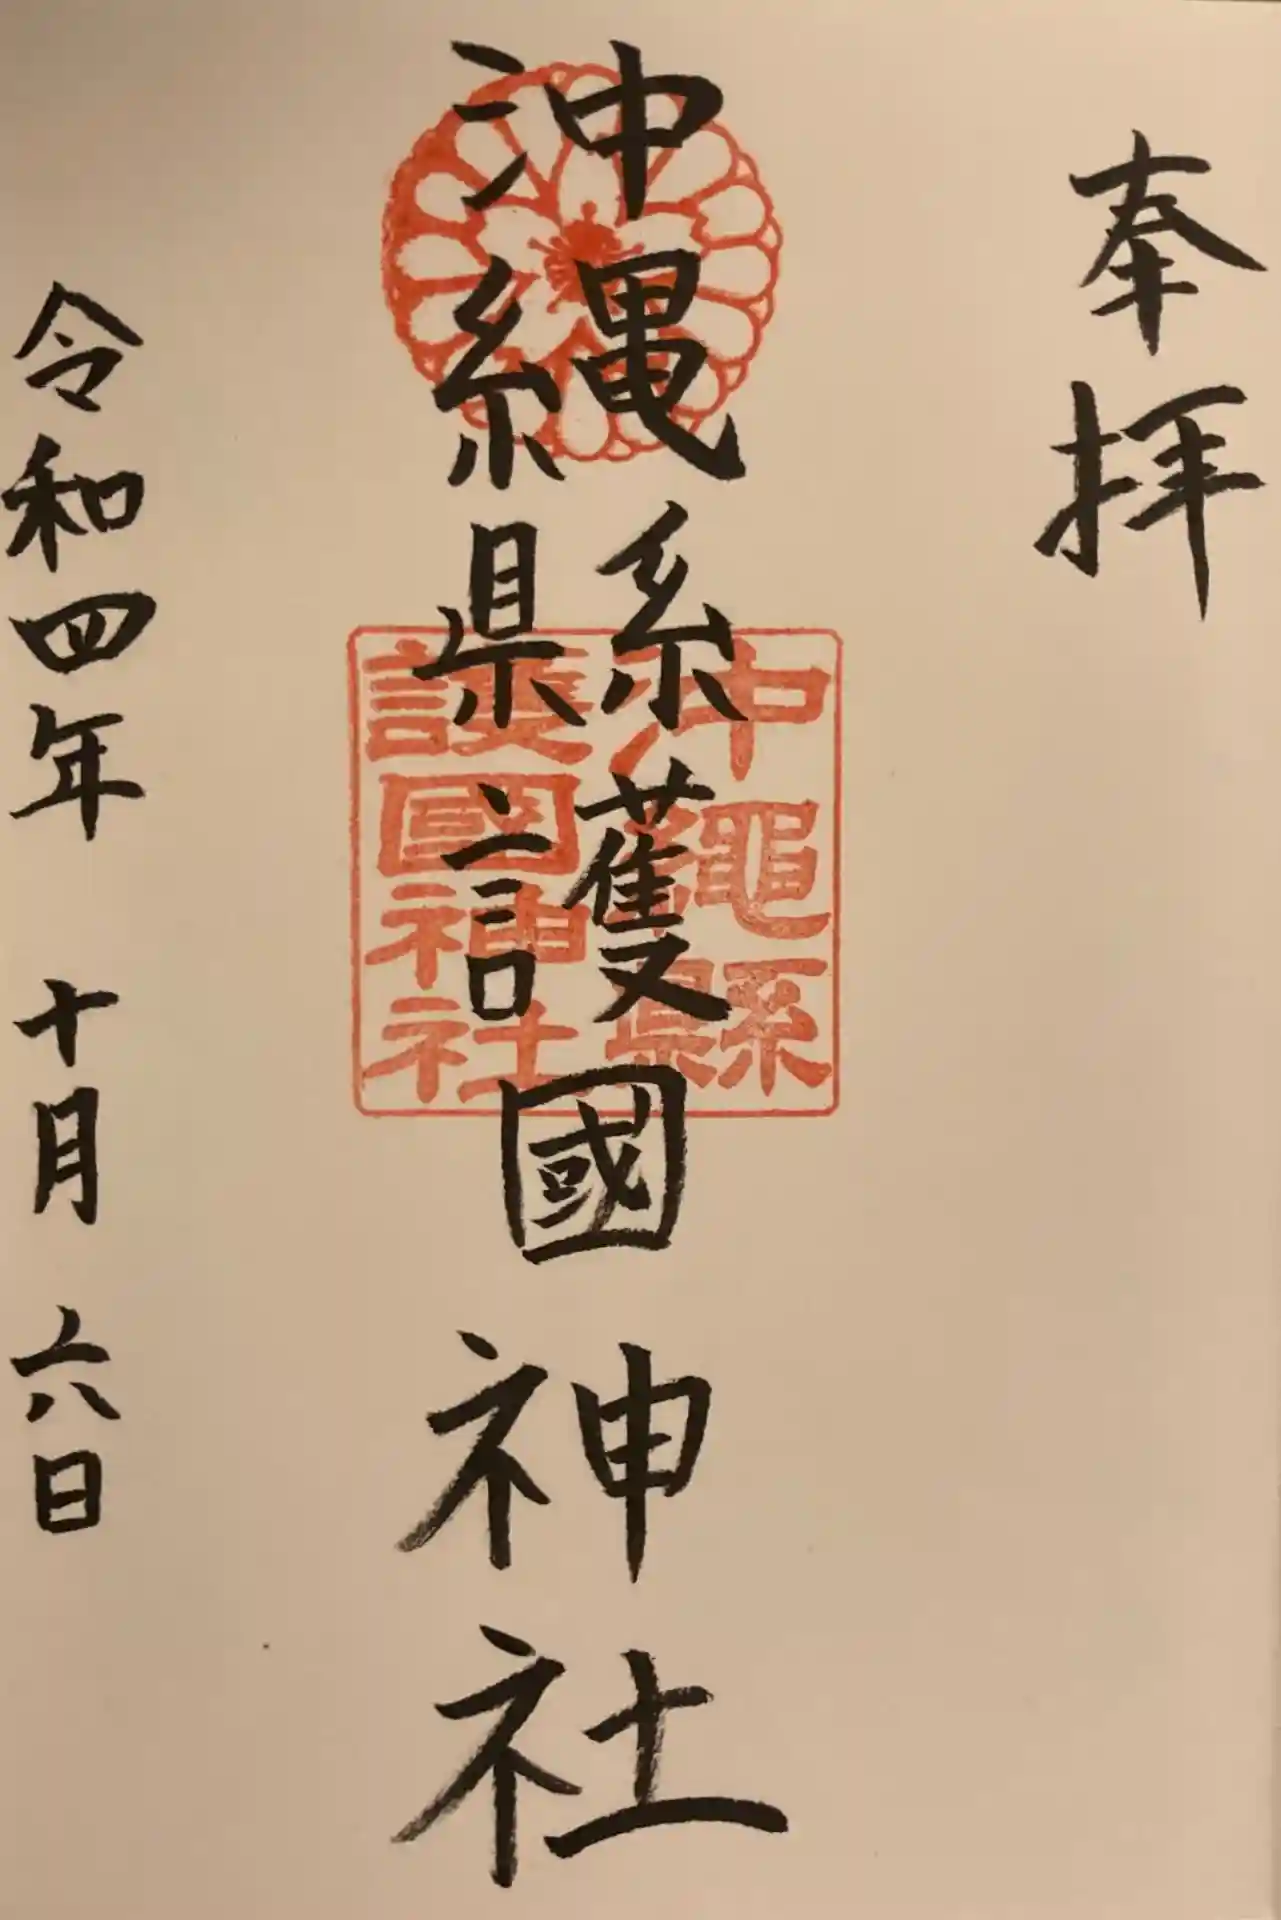 奉拝
沖縄縣護國神社
沖繩縣
護國神社
令和四年 十月 六日